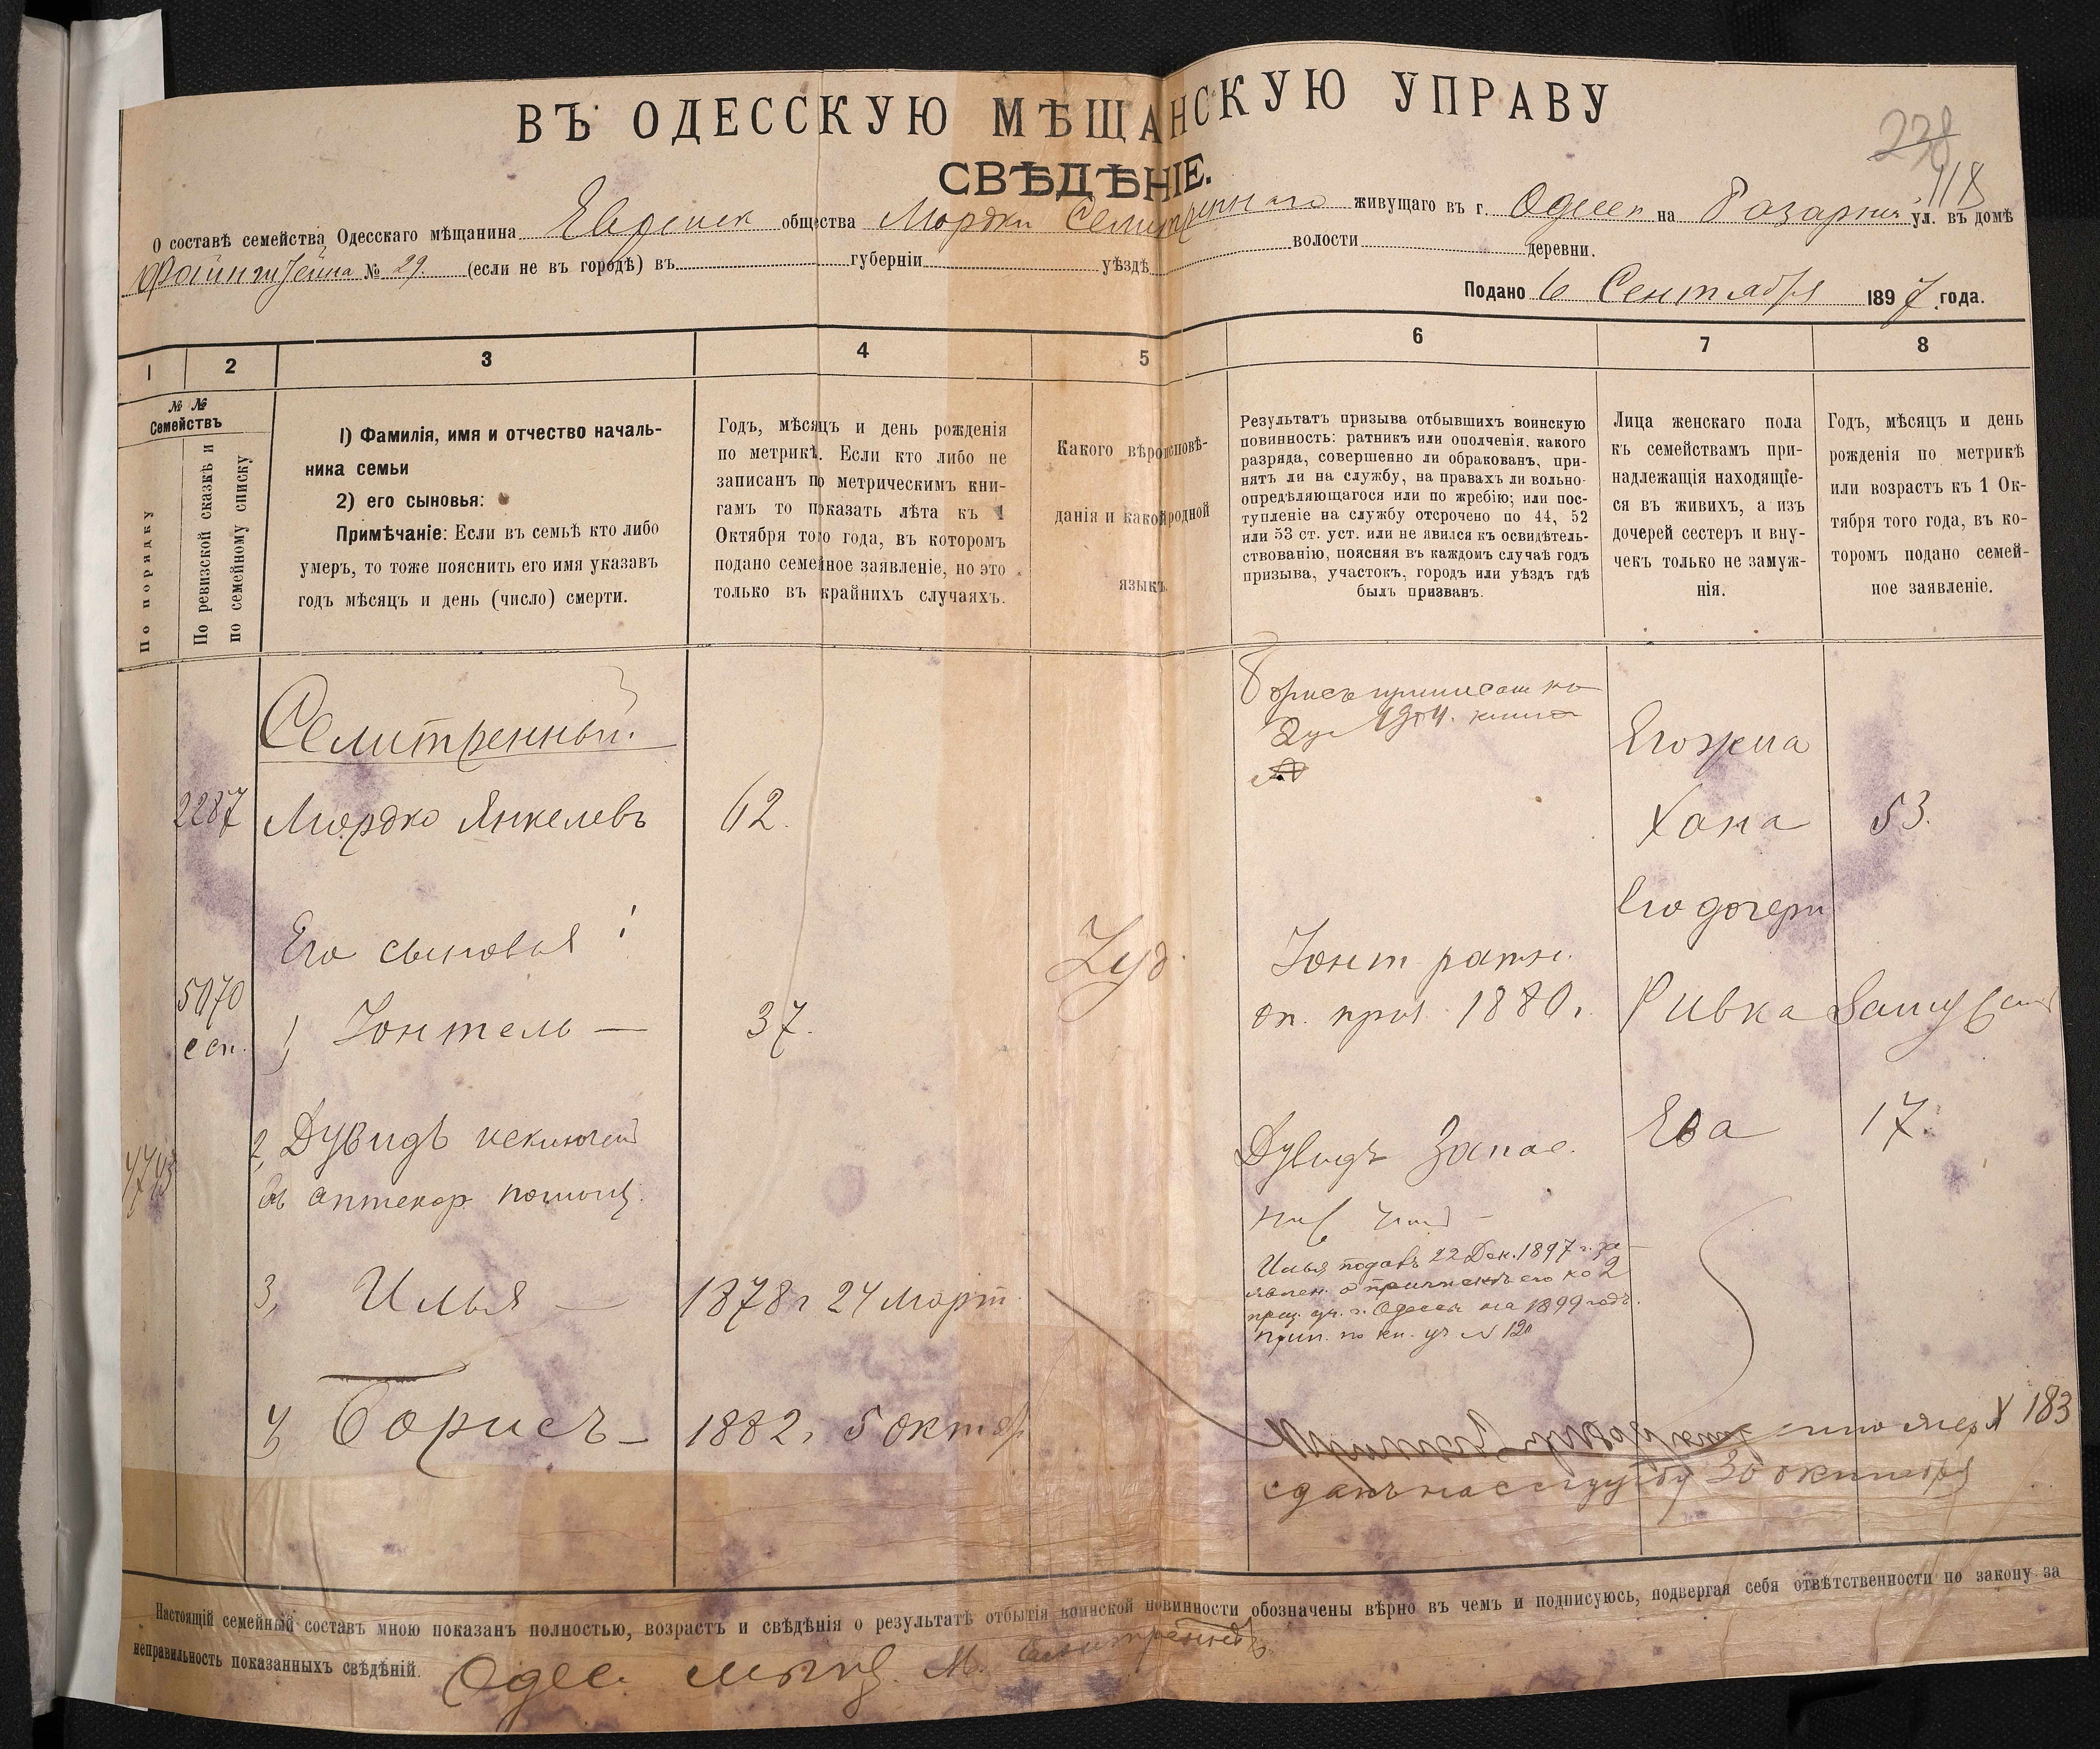 ВЪ ОДЕССКУЮ МѢЩАНСКУЮ УПРАВУ
СВѢДѢНІЕ.
238
118
О составѣ семейства Одесскаго мѣщанина Еврейск общества Мордки Селитреннаго живущаго въ г. Одессѣ на Базарной ул. въ домѣ
Файнштейна № 29. (если не въ городѣ) въ губерніи уѣздѣ волости деревни.
Подано 6 Сентября 1897 года.
1 2 3 4 5 6 7 8
№ №
Семействъ
По порядку
По ревизской сказкѣ и
по семейному списку
1) Фамилія, имя и отчество началь-
ника семьи
2) его сыновья:
Примѣчаніе: Если въ семьѣ кто либо
умеръ, то тоже пояснить его имя указавъ
годъ мѣсяцъ и день (число) смерти.
Годъ, мѣсяцъ и день рожденія
по метрикѣ. Если кто либо не
записанъ по метрическимъ кни-
гамъ то показать лѣта къ 1
Октября того года, въ которомъ
подано семейное заявленіе, но это
только въ крайнихъ случаяхъ.
Какого вѣроисповѣ-
данія и какой родной
языкъ
Результатъ призыва отбывшихъ воинскую
повинность: ратникъ или ополченія, какого
разряда, совершенно ли обракованъ, при-
нятъ ли на службу, на правахъ ли вольно-
опредѣляющагося или по жребію; или пос-
тупленіе на службу отсрочено по 44, 52
или 53 ст. уст. или не явился къ освидѣтель-
ствованію, поясняя въ каждомъ случаѣ годъ
призыва, участокъ, городъ или уѣздъ гдѣ
былъ призванъ.
Лица женскаго пола
къ семействамъ при-
надлежащія находящіе-
ся въ живыхъ, а изъ
дочерей сестеръ и вну-
чекъ только не замуж-
нія.
Годъ, мѣсяцъ и день
рожденія по метрикѣ
или возрастъ къ 1 Ок-
тября того года, въ ко-
торомъ подано семей-
ное заявленіе.
Селитренный.
Борисъ приписан ко
2 уч 1904.
Его жена
2287 Мордко Янкелевъ 62. Хана 53.
Его дочери
Его сыновья:
Іуд.
Іонт ратн.
5070
1) Іонтель — 37. оп. приз. 1880 г. Ривка Замуж
2, Дувидъ исключен Дувидъ Запас. Ева 17.
4743 въ аптекар помощ.
Илья подавъ 22 Дек. 1897 г. за-
явлен. о припискѣ его ко 2
приз. уч. г. Одессы на 1899 годъ.
прип. по кн. уч № 120
3, Илья — 1878 г 24 март
4) Борисъ — 1882 г 5 Октяб
183
сданъ на службу 30 октября
Настоящій семейный составъ мною показанъ полностью, возрастъ и свѣдѣнія о результатѣ отбытія воинской повинности обозначены вѣрно въ чемъ и подписуюсь, подвергая себя отвѣтственности по закону за
неправильность показанныхъ свѣдѣній. Одес. мѣщ. М. Селитренный